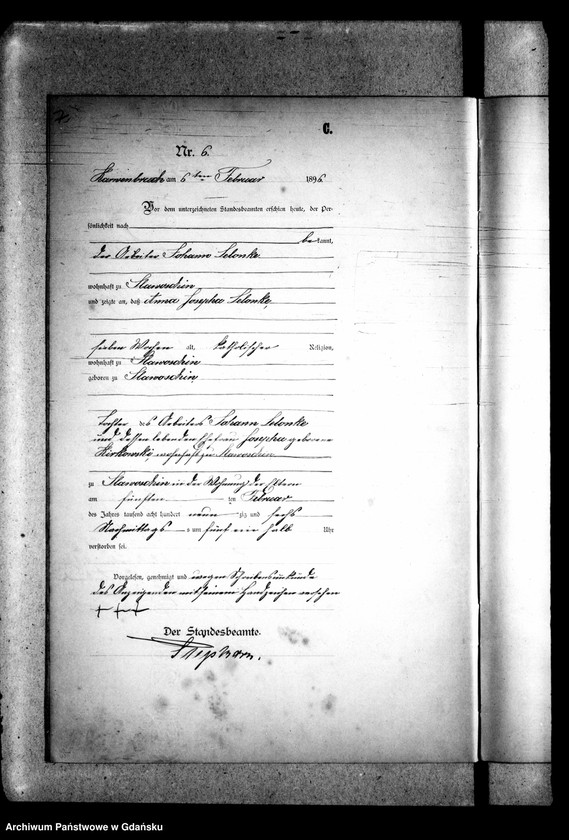 C.
Nr. 6.
Karwenbruch am 6 ten Februar 1896
Vor dem unterzeichneten Standesbeamten erschien heute, der Per-
sönlichkeit nach
bekannt,
der Arbeiter Johann Selonke
wohnhaft zu Slawoschin
und zeigte an, daß Anna Josepha Selonke,
sieben Wochen alt, katholischer Religion,
wohnhaft zu Slawoschin
geboren zu Slawoschin
Tochter des Arbeiters Johann Selonke
und dessen lebenden Ehefrau Josepha geborene
wohnhaft zu Slawoschin
zu Slawoschin in der Wohnung der Eltern
am fünften ten Februar
des Jahres tausend acht hundert neunzig und sechs
Nachmittags um fünf ein halb Uhr
verstorben sei.
Vorgelesen, genehmigt und wegen Schreibensunkunde
des Anzeigenden mit seinem Handzeichen versehen
+ + +
Der Standesbeamte.
Archiwum Państwowe w Gdańsku